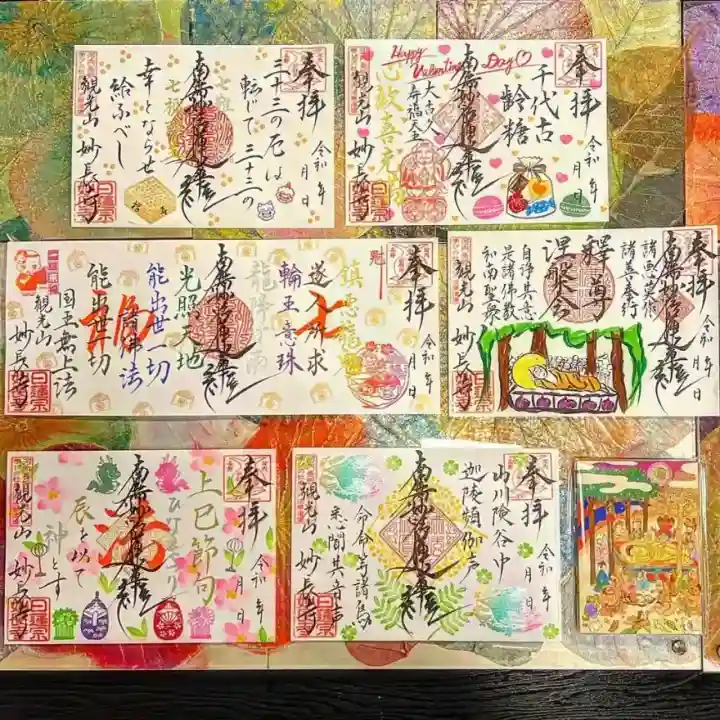 奉拝
令和 年
月 日
三十三の厄は
転じて三十三の
南無妙法蓮華経
幸とならせ
給ふべし
観光山 妙長寺
奉拝
令和 年
月 日
Happy Valentine Day
千代古
齢糖
南無妙法蓮華経
大古久
寿福大主
心歓喜充
観光山 妙長寺
奉拝
令和 年
月 日
鎮悪龍鬼
七
遂入所求
輪王意珠
龍降
南無妙法蓮華経
光照天地
能出世一切
諸佛法
能出世一切
国王君上法
観光山
妙長寺
日蓮宗
奉拝
令和 年
月 日
南無妙法蓮華経
諸悪莫作
諸善奉行
釋尊
涅槃会
自浄其意
是諸佛教
和南聖衆
観光山
妙長寺
奉拝
令和 年
月 日
上巳節句
ひなまつり
南無妙法蓮華経
辰を以て
神とす
観光山 妙長寺
日蓮宗
奉拝
令和 年
月 日
山川険谷中
迦陵頻伽声
南無妙法蓮華経
命命等諸鳥
悉聞其音声
観光山 妙長寺
日蓮宗